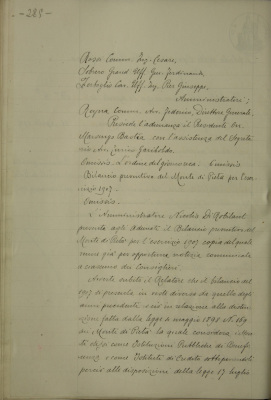 - 285 -
Rosa Comm. Ing. Cesare,
Grand Uff. Gen. Ferdinando
Cav. Uff. Ing. Pier Giuseppe,
Amministratori;
Comm. Av. Federico, Direttore Generale.
Presiede l'adunanza il Presidente On.
Marengo Bastia con l'assistenza del Segreta
rio
Omissis. L'ordine del giorno reca. Omissis
Bilancio preventivo del Monte di Pietà per l'eser
cizio 1907.
Omissis.
L'Amministratore Nicolis di Robilant
presenta agli adunati il Bilancio preventivo del
Monte di Pietà per l'esercizio 1907 copia del quale
venne già per opportuna notizia comunicata
a ciascuno dei Consiglieri.
Avverte anzitutto il Relatore che il bilancio del
1907 si presenta in modo diverso da quello degli
anni precedenti e ciò in relazione alla
fatta dalla legge 4 maggio 1898 N. 169
sui Monti di Pietà la quale considera i Mon
ti stessi come Istituzioni Pubbliche di Benefi
cenza e come Istituti di Credito sottoponendoli
perciò alle disposizioni della legge 17 luglio